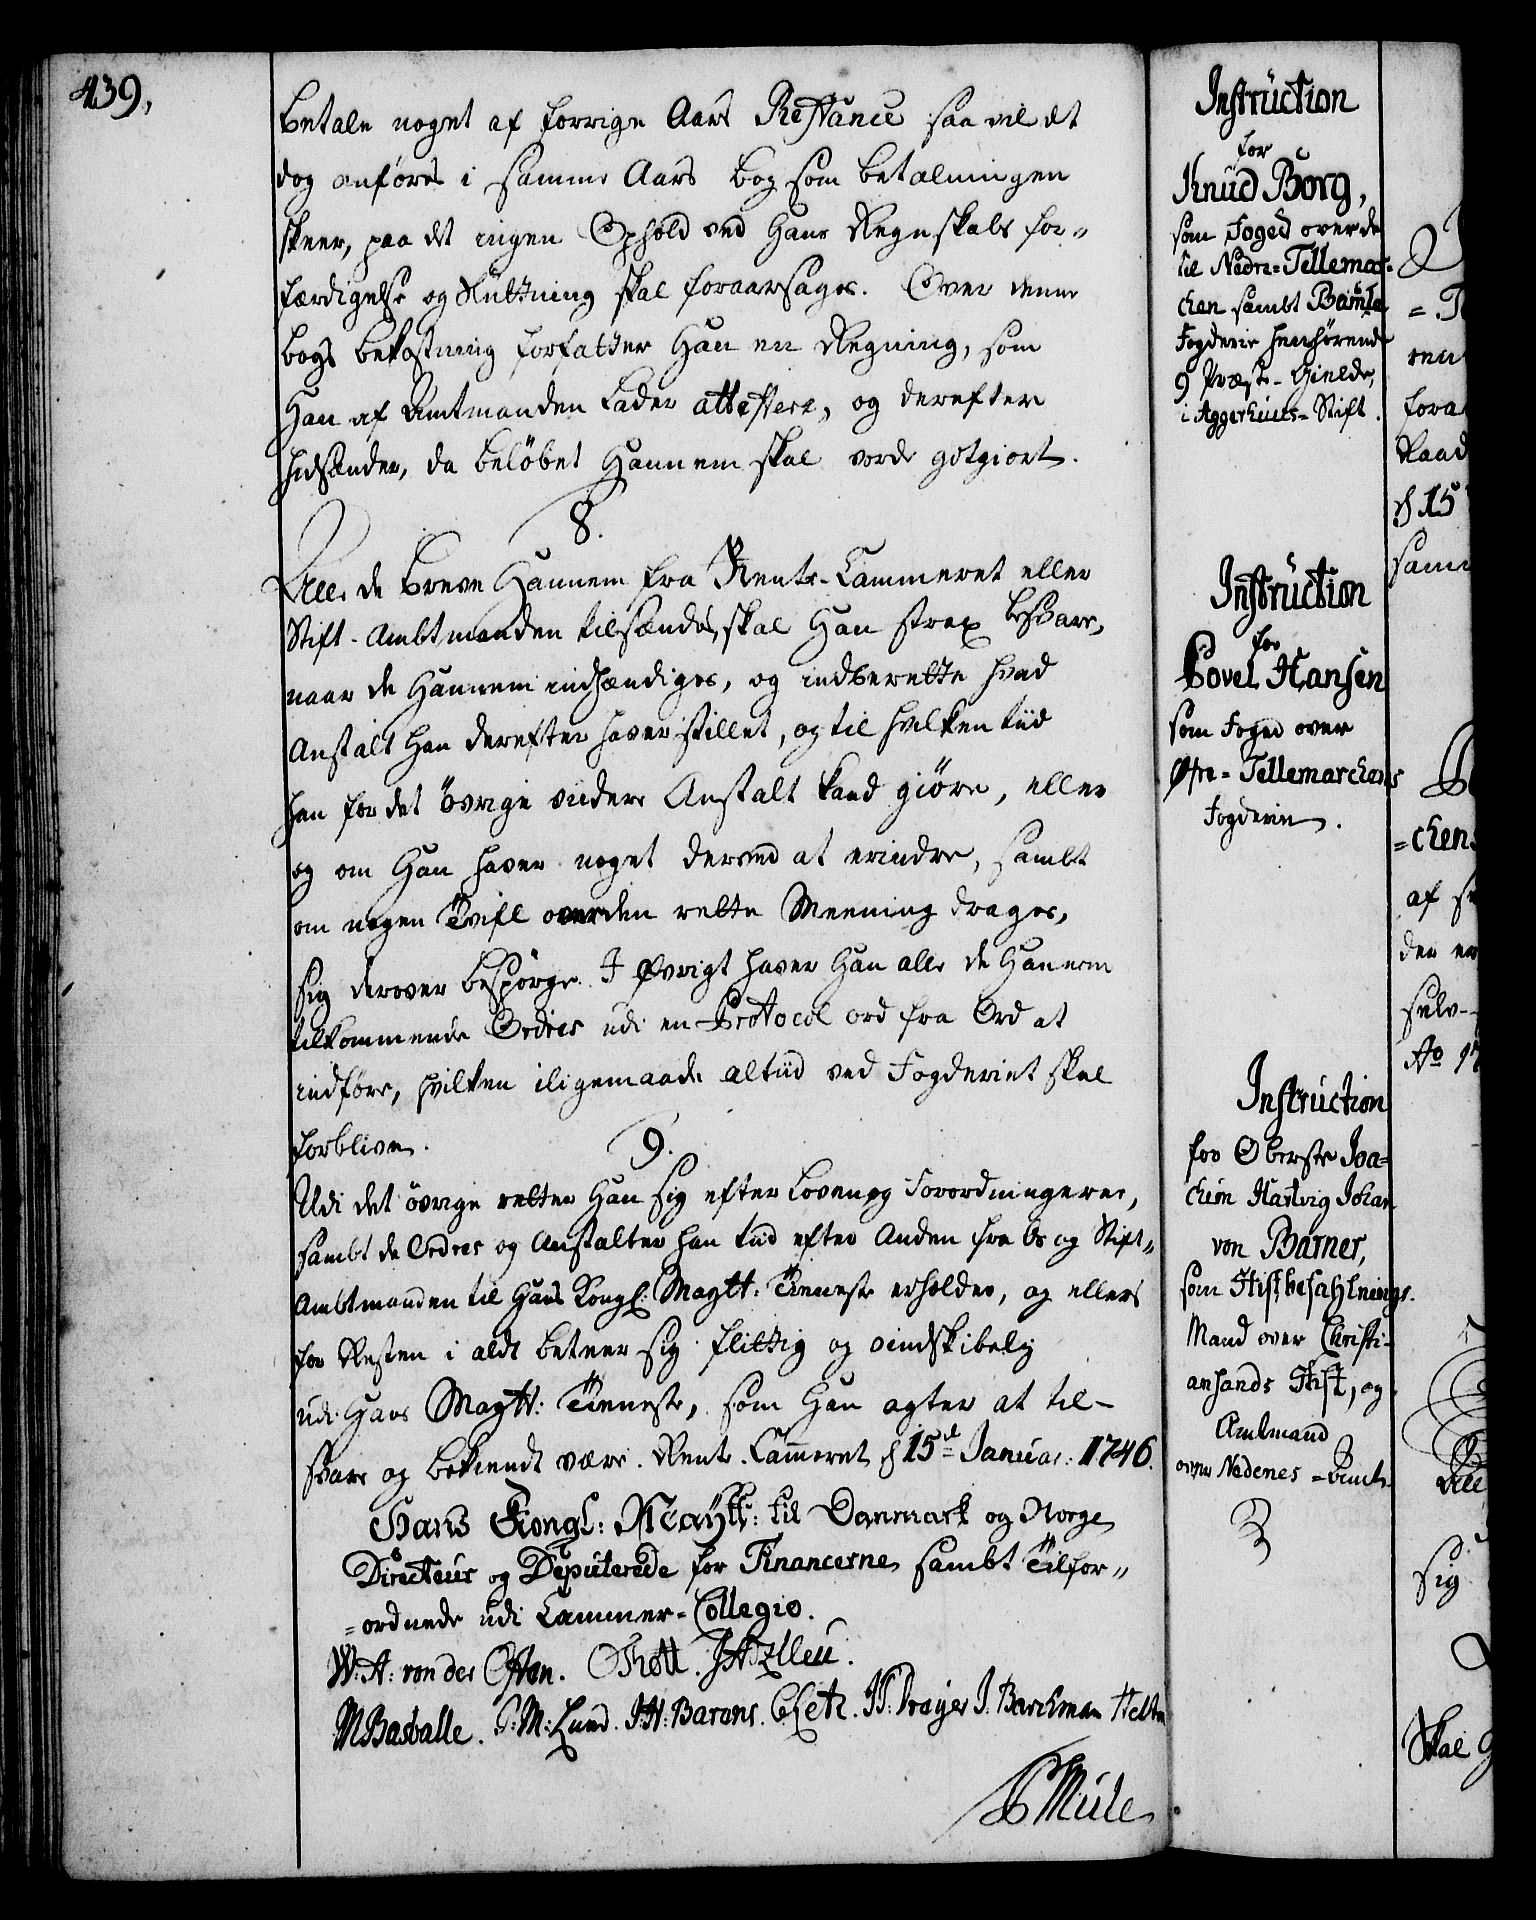 439,
betale noget af forrige Aars Restance saa vil det
dog anføres i samme Aars bog som betalningen
skeer, paa det ingen Ophold ved Hans Regnskabs for„
færdigelse og Slüttning skal foraarsages. Over denne
bogs bekostning forfatter Han en Regning, som
Han af Amtmanden lader attestere, og derefter
hidsender, da beløbet Hannem skal vorde gotgiort.
8.
Alle de breve Hannem fra Rente-Cammeret eller
Stift-Ambtmanden tilsendes, skal Han strax besvare,
naar de Hannem indhændiges, og indberette hvad
Anstalt han derefter haver stillet, og til hvilken tiid
han for det övrige viidere Anstalt kand giöre, eller
og om Han haver noget derved at erindre, sambt
om nogen Tvifl over den rette Meening drages,
sig derover bespörge. I Øvrigt haver Han alle de Hannem
tilkommende Ordres udi en Protocol ord fra Ord at
indføre, hvilken iligemaade altiid ved Fogderiet skal
forblive.
9.
Udi det övrige retter Han sig efter Loven og Forordningerne,
sambt de Ordres og Anstalter han tiid efter Anden fra Os og Stift„
Ambtmanden til Hans Kongl: Maytt: Tieneste erholder, og ellers
for Resten i aldt beteer sig flittig og vindskibelig
udi Hans Maytt: Tieneste, som Han agter at til-
svare og bekiendt være. Rente-Cammeret d 15de Januar: 1746.
Hans Kongl: Mayts: til Danmark og Norge
Directeur og Deputerede for Financerne sambt Tilfor„
=ordnede udi Cammer-Collegio.
W: A: von der Osten. OThott.
MBasballe. M: Lund. J: H: Barens. J. Barchman
Müle
Instrüction
for
Knud Borg,
som Foged over de
til Nedre=Tellemar=
chen sambt Bamle
Fogderie henhørende
9 Præste-Gielde,
i Aggerhuus-Stift.
Instrüction
for
Povel Hansen
som Foged over
Øfre=Tellemarchens
Fogderie.
Instrüction
for Oberste Joa=
chim Hartvig Johan
von Barner,
som Stiftbefahlnings-
Mand over Christi-
ansands Stift, og
Amtmand
over Nedenes=Amt.
foraa
Raad
d 15
samm
=chens
af
der
selv-
Ao 17
Alle
Sig
Skal